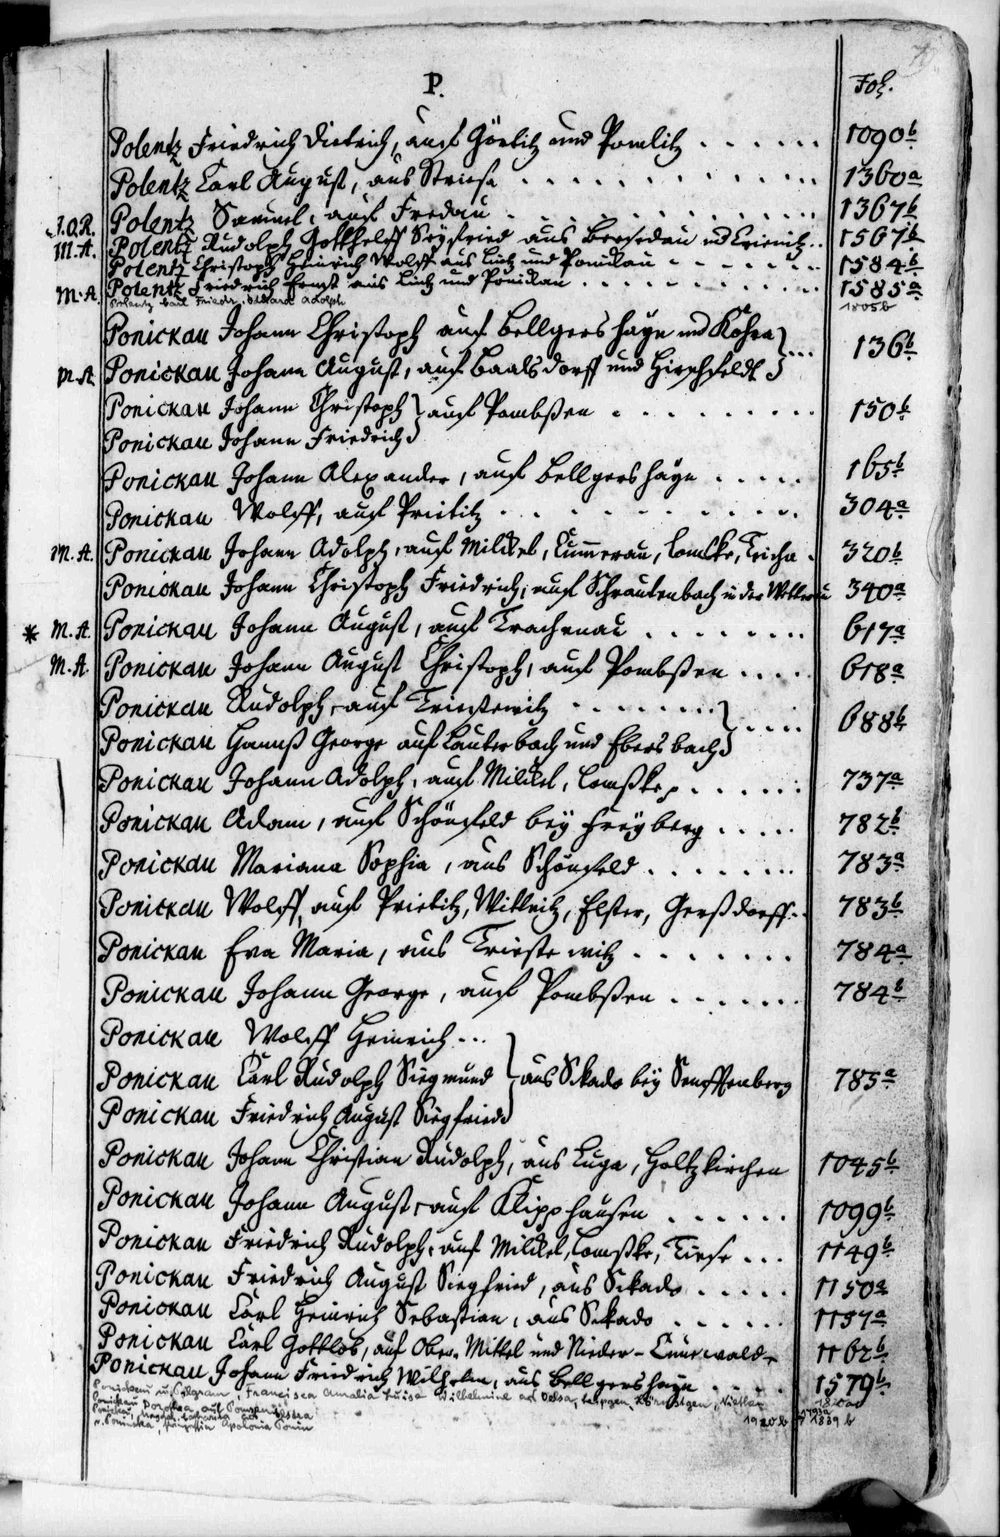 79
P.
Fol.
Polentz Friedrich Dietrich, auf Görlitz und Pomlitz . . . . . . 1090b
Polentz Carl August, aus Striesa . . . . . . . . . . . 1360a
Polentz Samuel, auf Fredau . . . . . . . . . . . 1367b
J.O.R. Polentz Rudolph Gotthelff Seyfried aus Beesedau und Crienitz . . 1567b
M.A. Polentz Christoph Heinrich Wolff aus Luch und Ponickau . . . . . . 1584b
M.A. Polentz Friedrich Ernst aus Luch und Ponickau . . . . . . . . . 1585a
Polentz Carl Friedr. Eduard Adolph 1805b
Ponickau Johann Christoph auf Bellgershayn und Kohra } . . . 136b
M.A. Ponickau Johann August, auf Baalsdorff und Hirschfeldt }
Ponickau Johann Christoph } auf Pombßen . . . . . . . . . 150b
Ponickau Johann Friedrich }
Ponickau Johann Alexander, auf Bellgershayn . . . . . 165b
Ponickau Wolff, auf Prietitz . . . . . . . . . . 304a
M.A. Ponickau Johann Adolph, auf Milckel, Cummerau, Lomske, Teicha . 320b
Ponickau Johann Christoph Friedrich, auf Schrautenbach in der Wetterau 340a
* M.A. Ponickau Johann August, auf Trachenau . . . . . . . . 617a
M.A. Ponickau Johann August Christoph, auf Pombßen . . . . . 618a
Ponickau Rudolph, auf Triestewitz . . . . . . . } . . . . 688b
Ponickau Hannß George auf Lauterbach und Ebersbach }
Ponickau Johann Adolph, auf Milckel, Lomßke, . . . . . . 737a
Ponickau Adam, auf Schönfeld bey Freyberg . . . . . 782b
Ponickau Mariana Sophia, aus Schönfeld . . . . . . . 783a
Ponickau Wolff, auf Prietitz, Wittritz, Elster, Gerßdorff . . 783b
Ponickau Eva Maria, aus Triestewitz . . . . . . . 784a
Ponickau Johann George, auf Pombßen . . . . . . 784b
Ponickau Wolff Heinrich . . . }
Ponickau Carl Rudolph Siegmund } aus Sckado bey Senfftenberg 785a
Ponickau Friedrich August Siegfried }
Ponickau Johann Christian Rudolph, aus Luga, Holtzkirchen 1045b
Ponickau Johann August, auf Klipphausen . . . . . . 1099b
Ponickau Friedrich Rudolph, auf Milckel, Lomßke, Teicha . . . 1149b
Ponickau Friedrich August Siegfried, aus Sckado . . . . . 1150a
Ponickau Carl Heinrich Sebastian, aus Sckado . . . . . . 1157a
Ponickau Carl Gottlob, auf Ober- Mittel und Nieder-Cunewalde 1162b
Ponickau Johann Friedrich Wilhelm, aus Bellgershayn . . . . 1579b
Ponickau u. Pilgram, Francisca Amalia Luisa Wilhelmine
Ponickau Dorothea, auf Pomssen